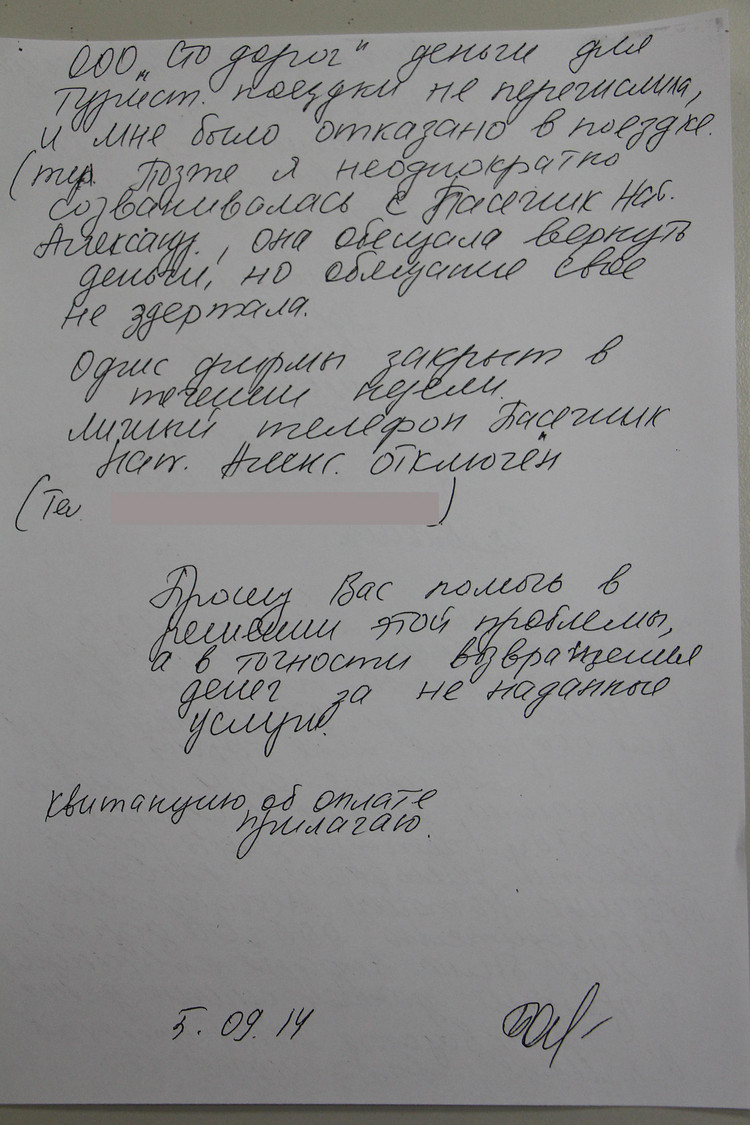 ООО „Сто дорог" деньги для
турист. поездки не перечислила,
и мне было отказано в поездке.
Позже я неоднократно
созванивалась с Пасечник Нат.
Александ., она обещала вернуть
деньги, но обещание свое
не здержала.
Офис фирмы закрыт в
течении недели.
личный телефон Пасечник
Нат. Алекс. отключён
(Тел )
Прошу Вас помочь в
решении этой проблемы,
а в точности возвращения
денег за не наданные
услуги.
Квитанцию об оплате
прилагаю.
5.09.14